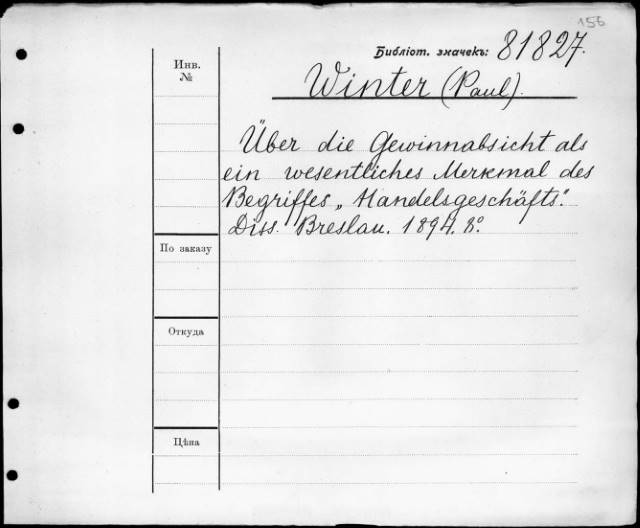 156
Библіот. значекъ: 81827.
Инв.
№
Winter (Paul).
Über die Gewinnabsicht als
ein wesentliches Merkmal des
Begriffes „Handelsgeschäfts".
Diss. Breslau. 1894. 8º.
По заказу
Откуда
Цѣна